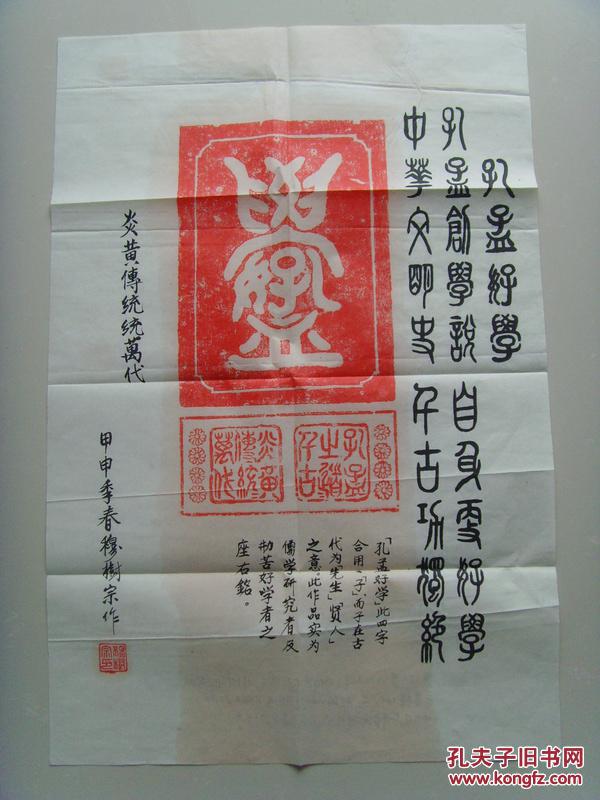 孔孟好学
孔孟創學説 自身更好學
中華文明史 千古功獨絶
孔孟
之道
千古
炎黄
傳統
萬代
「孔孟好学」此四字
合用「子」，而子在古
代为先生」「贤人」
之意此作品实为
儒学研究者及
勤苦好学者之
座右銘。
炎黄傳統統萬代
甲申季春穆樹宗作
孔夫子旧书网
www.kongfz.com